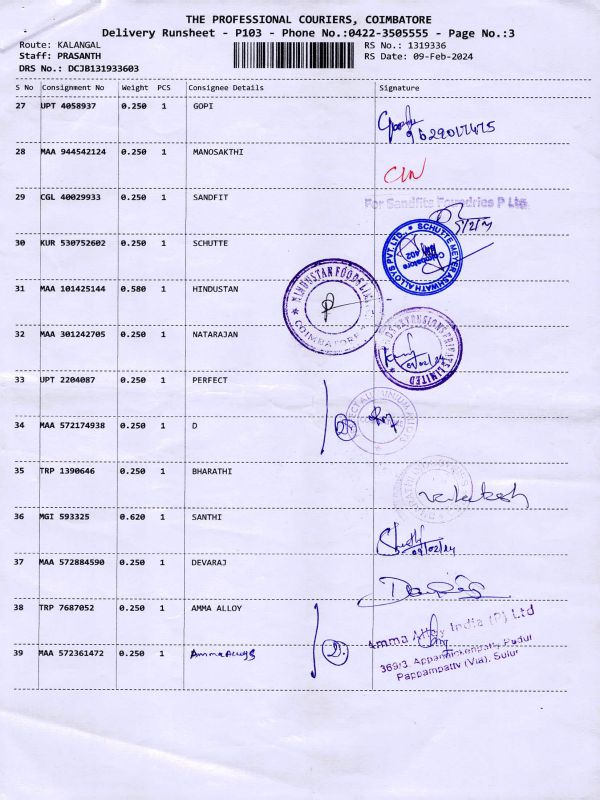 THE PROFESSIONAL COURIERS, COIMBATORE
Delivery Runsheet - P103 - Phone No.:0422-3505555 - Page No.:3
Route: KALANGAL RS No.: 1319336
Staff: PRASANTH RS Date: 09-Feb-2024
DRS No.: DCJB131933603
S No Consignment No Weight PCS Consignee Details Signature
27 UPT 4058937 0.250 1 GOPI
28 MAA 944542124 0.250 1 MANOSAKTHI
29 CGL 40029933 0.250 1 SANDFIT
For Sandfits Foundries P Ltd.
30 KUR 530752602 0.250 1 SCHUTTE
SCHUTTE MEYER ASHWATH ALLOYS PVT. LTD.
Coimbatore
402
31 MAA 101425144 0.580 1 HINDUSTAN
COIMBATORE
32 MAA 301242705 0.250 1 NATARAJAN
PRIVATE LIMITED
09/02/24
33 UPT 2204087 0.250 1 PERFECT
34 MAA 572174938 0.250 1 D
35 TRP 1390646 0.250 1 BHARATHI
Venkatesh
36 MGI 593325 0.620 1 SANTHI
09/02/24
37 MAA 572884590 0.250 1 DEVARAJ
38 TRP 7687052 0.250 1 AMMA ALLOY
Amma Alloy India (P) Ltd
39 MAA 572361472 0.250 1 Amma Alloys
369/3, Appanaickenpatty Pudur
Pappampatty (Via), Sulur